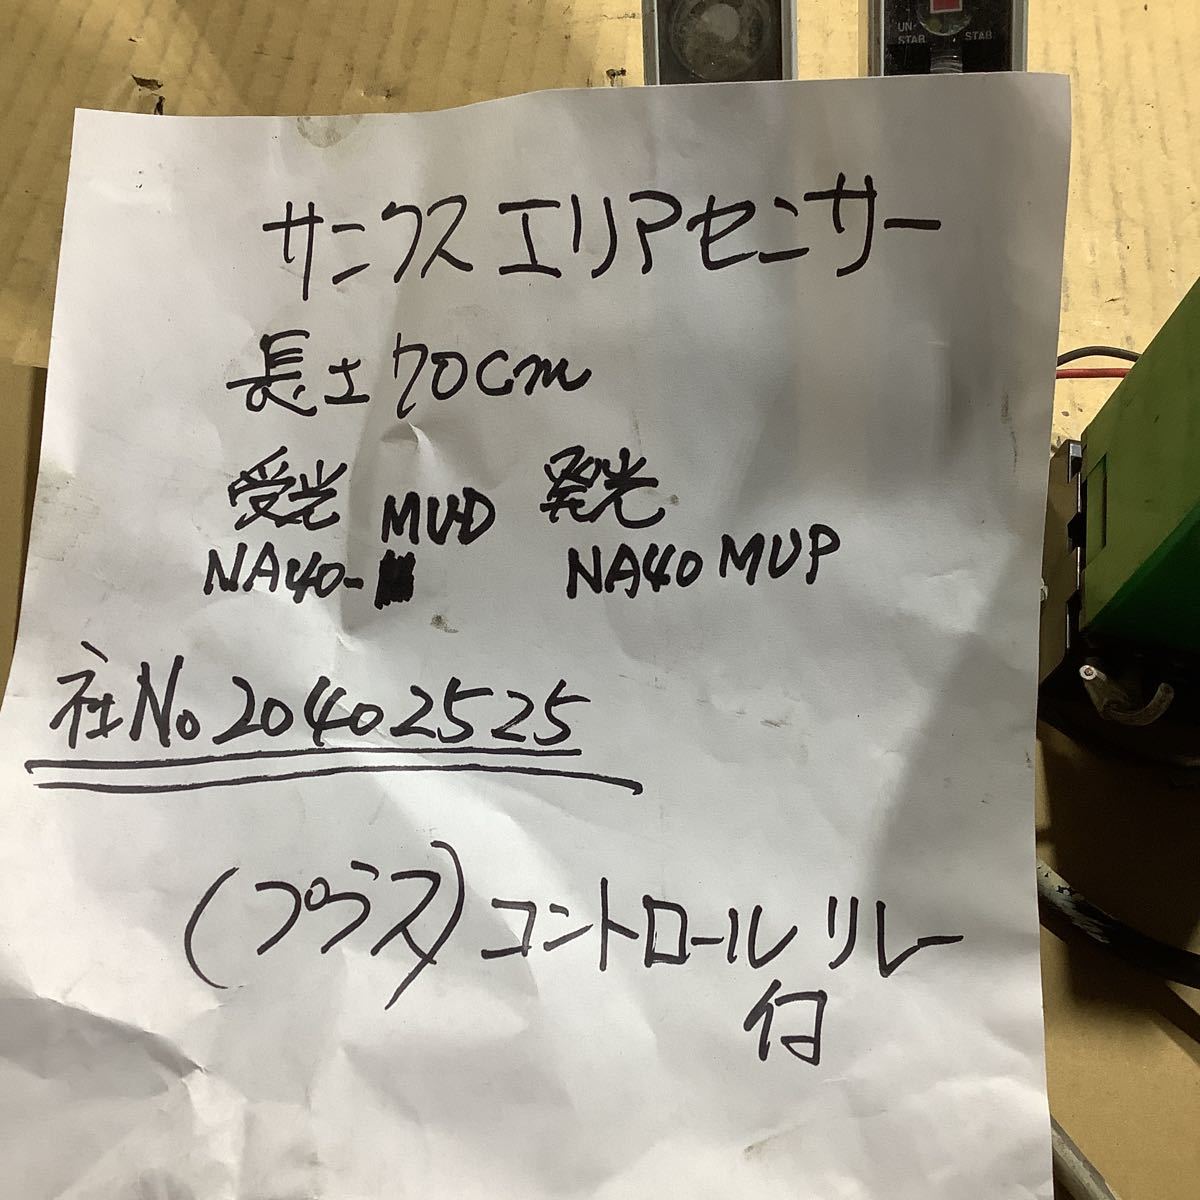 UN-
STAB STAB
サンクス エリアセンサー
長さ 70cm
受光 MUD 発光
NA40- NA40 MUP
社No 20402525
(プラス) コントロール リレー
付